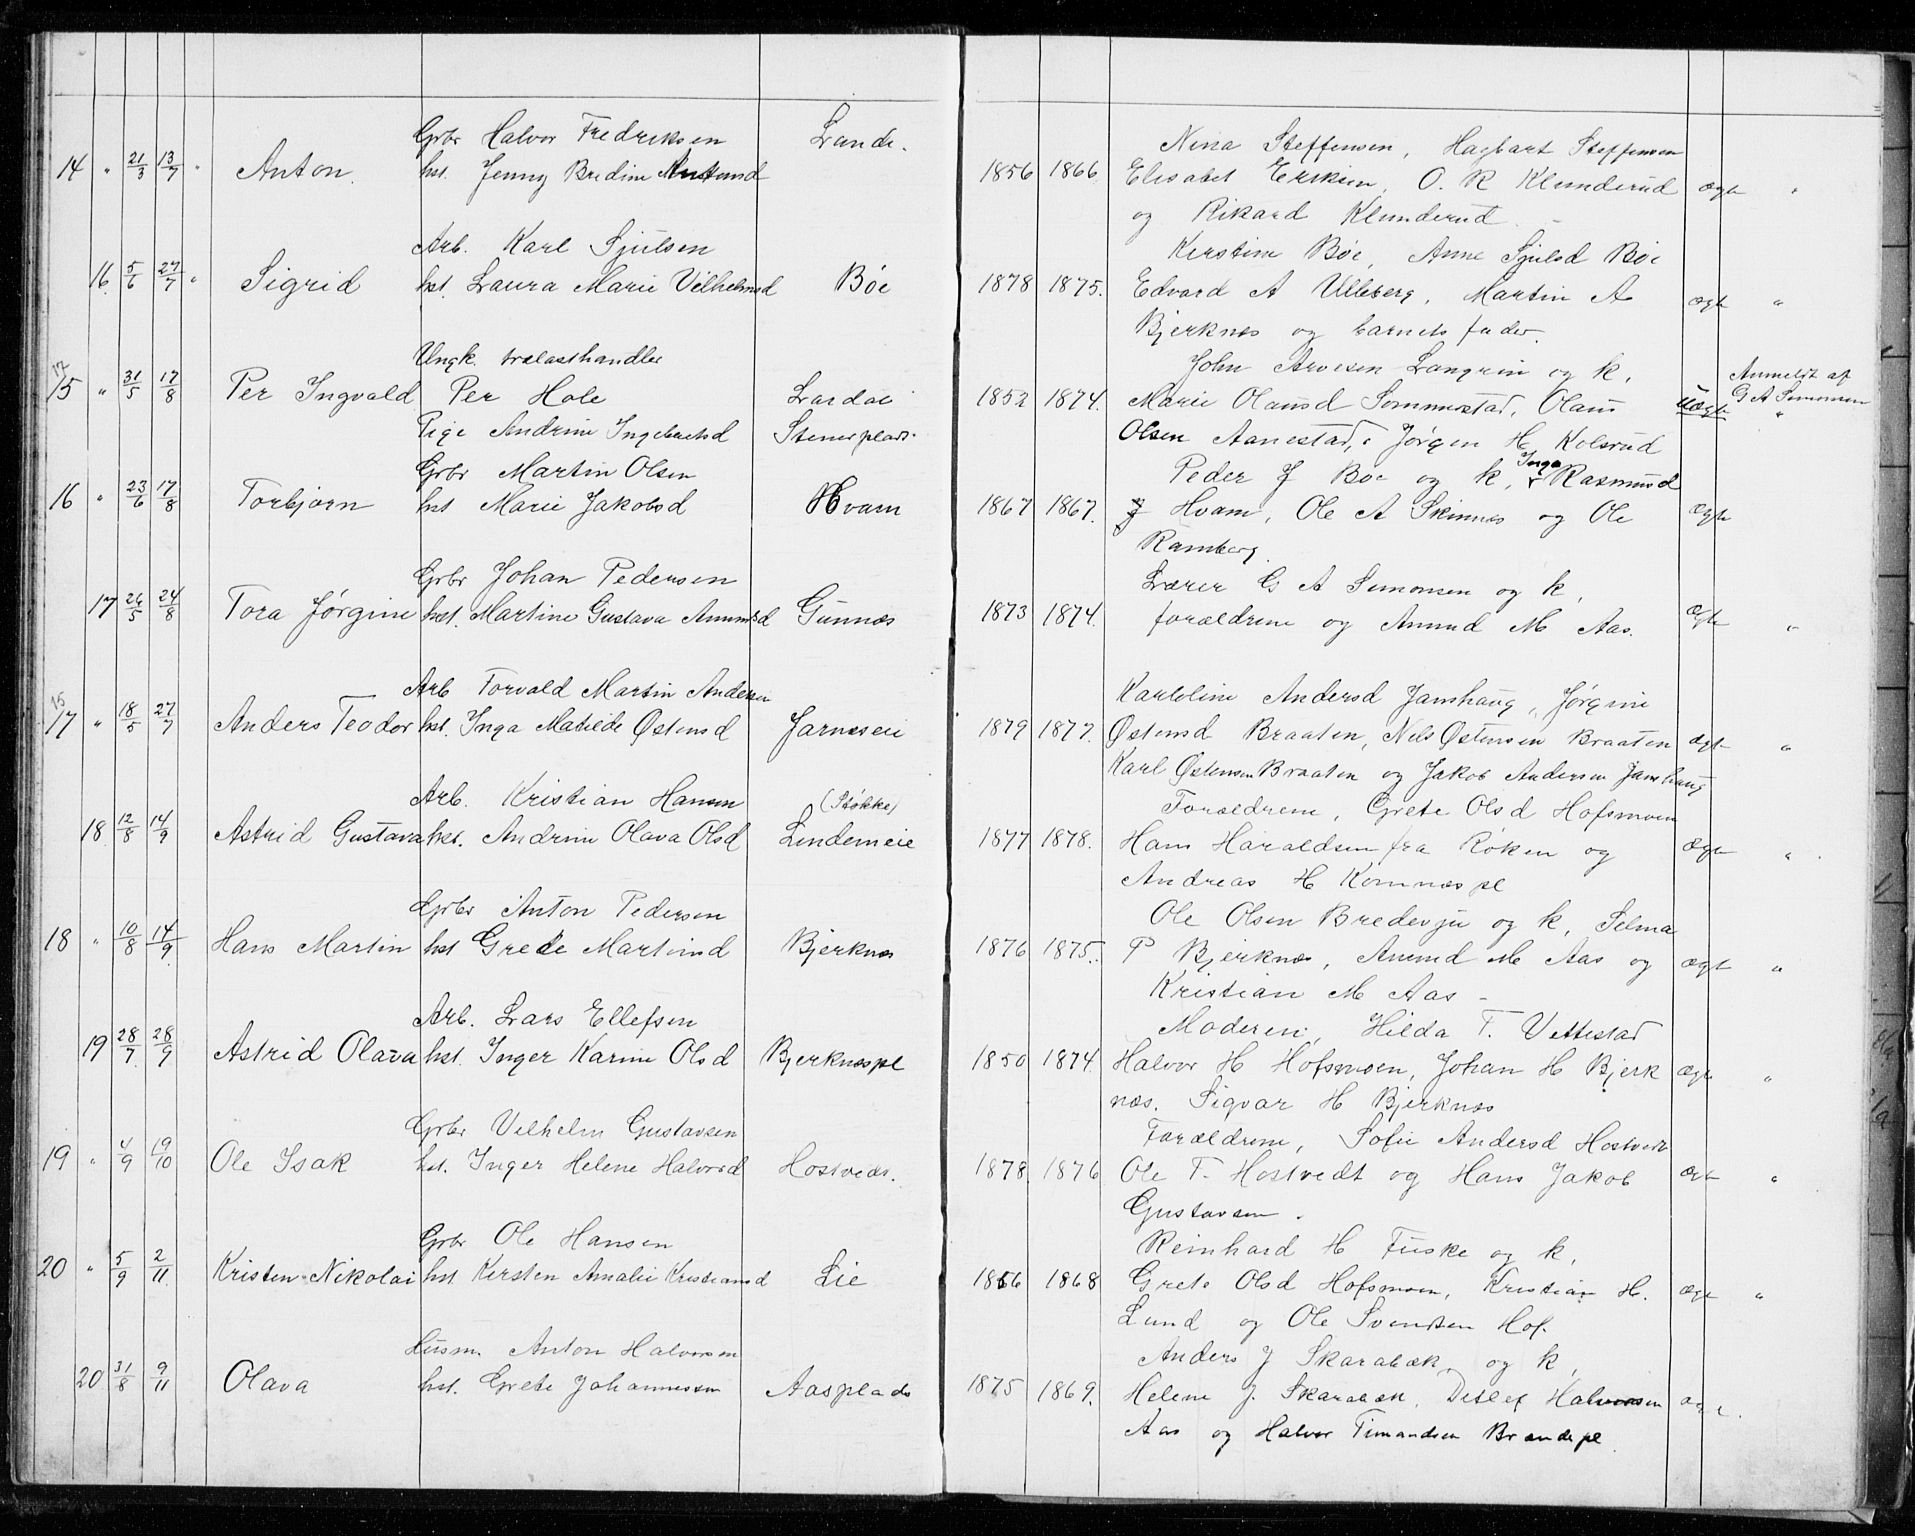 Grbr Halvor Fredriksen Lande.
14 " 21/3 13/7 " Anton. hst. Jenny Bredine
Arb. Karl Sjulsen
16. 5/6 27/7 " Sigrid hst. Laura Marie Vilhelmsd Bøe
Ungk. trælasthandler
15 " 31/5 17/8 Per Ingvald Per Hole Lardal
Pige Andrine Ingebretsd Stenerplads.
Grbr Martin Olsen
16 " 23/6 17/8 Torbjørn hst Marie Jakobsd Hvam
Grbr Johan Pedersen
17 26/5 24/8 Tora Jørgine hst. Martine Gustava Amundsd Gunnæs
Arb Torvald Martin Andersen
15
17 " 18/5 27/7 Anders Teodor hst. Inga Matilde Østensd Jarnæseie
Arb. Kristian Hansen (Støkke)
18 12/8 14/9 Astrid Gustava hst. Andrine Olava Olsd Lindemeie
Grbr Anton Pedersen
18 " 10/8 14/9 Hans Martin hst Grete Martinsd Bjerknæs
Arb. Lars Ellefsen
19 28/7 28/9 Astrid Olava hst. Inger Karine Olsd Bjerknæspl
Grbr Vilhelm Gustavsen
19 " 4/9 19/10 Ole Isak hst. Inger Helene Halvorsd Hostvedt.
Grbr Ole Hansen
20 " 5/9 2/11 Kristen Nikolai hst Kirsten Amalie Kristiansd Lie
Husm. Anton Halvorsen
20 31/8 9/11 Olava hst. Grete Johannessen Aasplads
Nina Steffensen, Hagbart Steffensen
1856 1866. Elisabet Eriksen, O. R Klunderud ægte "
og Rikard Klunderud
Kirstine Bøe, Anne Sjulsd Bøe
1878 1875. Edvard A Ulleberg, Martin A ægte "
Bjerknæs og barnets fader.
John Arvesen Langrin og k, Anmeldt af
1852 1874. Marie Olausd Sommerstad, Olaus uægte G A Simonsen "
Olsen Aanestad, Jørgen H. Kolsrud
Peder J Bøe og k, Inga Rasmusd
1867 1867. J Hvam, Ole A Skinnes og Ole ægte
Ramberg.
Lærer G A Simonsen og k,
1873 1874. forældrene og Amund M Aas. ægte "
Karoline Andersd Janshaug, Jørgine
1879 1877. Østensd Braaten, Nels Østensen Braaten ægte "
Karl Østensen Braaten og Jakob Andersen Janshaug
Forældrene, Grete Olsd Hofsmoen
1877 1878. Hans Haraldsen fra Røken og ægte "
Andreas H Komnæspl
Ole Olsen Bredevju og k, Selma
1876 1875. P Bjerknæs, Amund M Aas og ægte "
Kristian M Aas -
Moderen, Hilda T. Vettestad
1850 1874. Halvor H Hofsmoen, Johan H Bjerk ægte "
næs. Sigvar H Bjerknæs
Forældrene, Sofie Andersd Hostvedt
1878 1876 Ole T. Hostvedt og Hans Jakob ægte "
Gustavsen.
Reinhard H Fuske og k,
1866 1868 Grete Olsd Hofsmoen, Kristian H. ægte "
Lund og Ole Svendsen Hof.
Anders J Skarabæk og k,
1875 1869. Helene J. Skarabæk, Detlef Halvorsen ægte.
Aas og Halvor Timandsen Brandspl